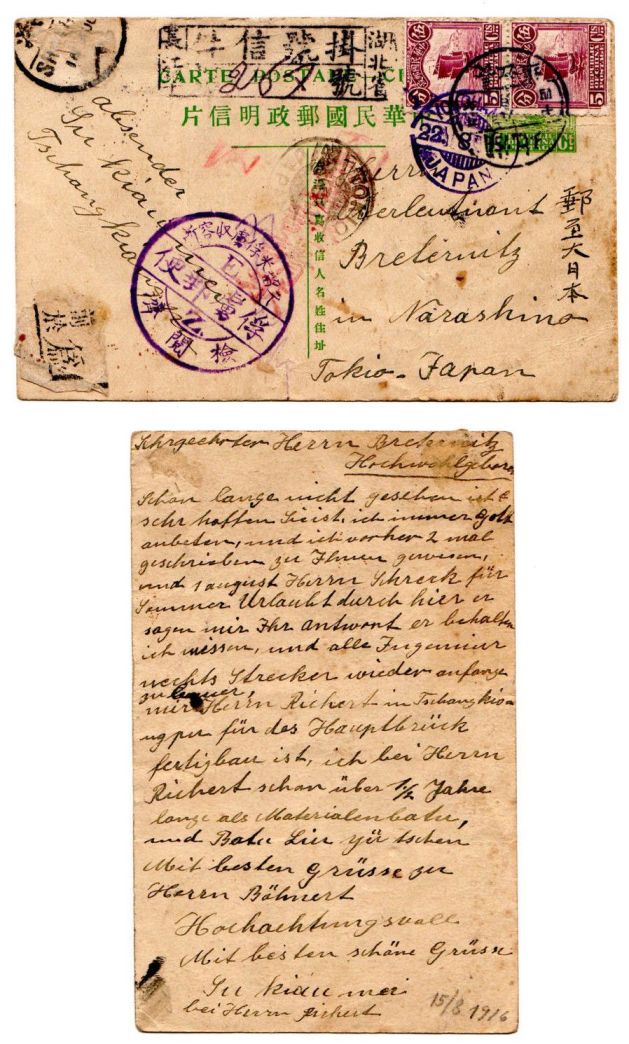 湖北省
掛號信件
長江埠
號
261
CARTE POSTALE CHINE
中華民國郵政明信片
5 CTS
JAPAN
Absender
Su kiau mei
Tschangkia
Herrn
Oberleutnant
Breternitz
in Narashino
Tokio - Japan
郵至大日本
收信人名姓住址
俘虜郵便
檢閱濟
Sehrgeehrter Herrn Breternitz
Hochwohlgeboren
Schon lange nicht gesehen ich
sehr hoffen Sie ist, ich immer Gott
anbeten, und ich vorher 2 mal
geschrieben zu Ihnen gewesen,
und 1 august Herrn Schreck für
Sommer Urlaubt durch hier er
sagen mir Ihr antwort er behalten
ich wissen, und alle Ingenieur
nechts Strecker wieder anfange
zu bauer,
nur Herrn Richert in Tschangkio-
ug per für des Hauptbrück
fertigbau ist, ich bei Herrn
Richert schon über 1/2 Jahre
lange als Materialenbatu,
und Batu Lieu yü tschen
Mit besten Grüsse zu
Herrn Böhnert
Hochachtungsvoll
Mit besten schöne Grüsse
Su kiau mei
bei Herrn Richert
15/8 1916